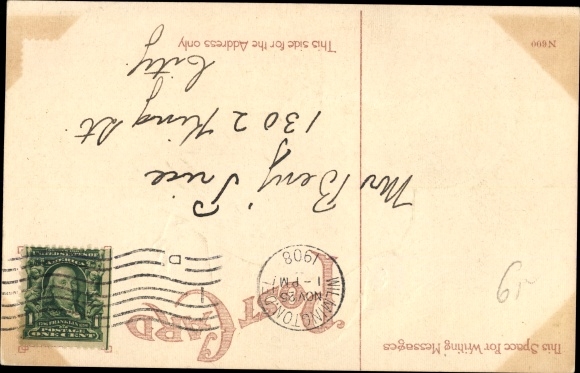 POST CARD
WILMINGTON, DEL.
NOV 25
1 - PM
1908
D
UNITED STATES OF AMERICA
1
FRANKLIN
POSTAGE
ONE CENT
Mr Benj Price
1302 King St.
City.
This side for the Address only
This Space For Writing Messages
N600